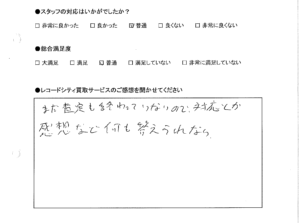 ●スタッフの対応はいかがでしたか？
□ 非常に良かった □ 良かった ☑ 普通 □ 良くない □ 非常に良くない
●総合満足度
□ 大満足 □ 満足 ☑ 普通 □ 満足していない □ 非常に満足していない
●レコードシティ買取サービスのご感想を聞かせてください
まだ査定も終わっていないので、対応とか
感想など何も答えられない